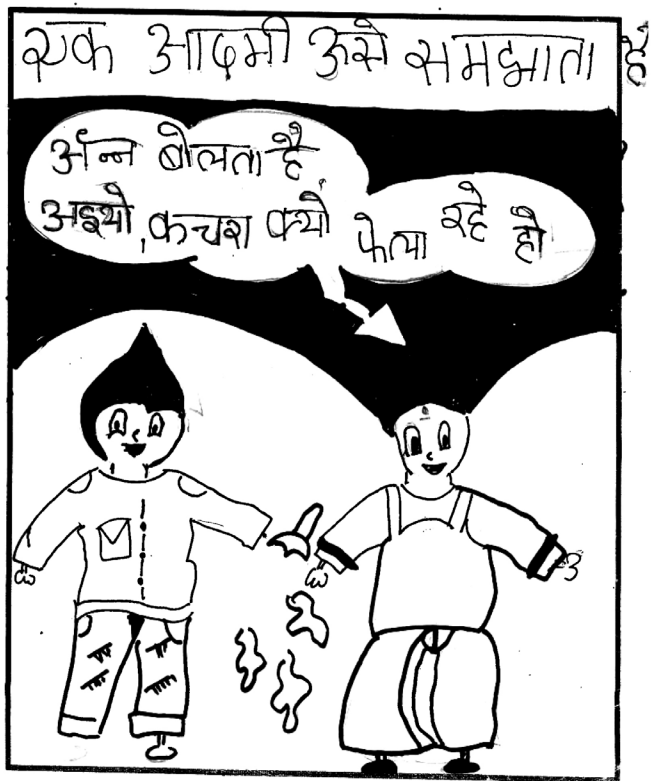 एक आदमी ऊसे समझाता है
अन्न बोलता है
अइयो, कचरा क्यों फेला रहे हो